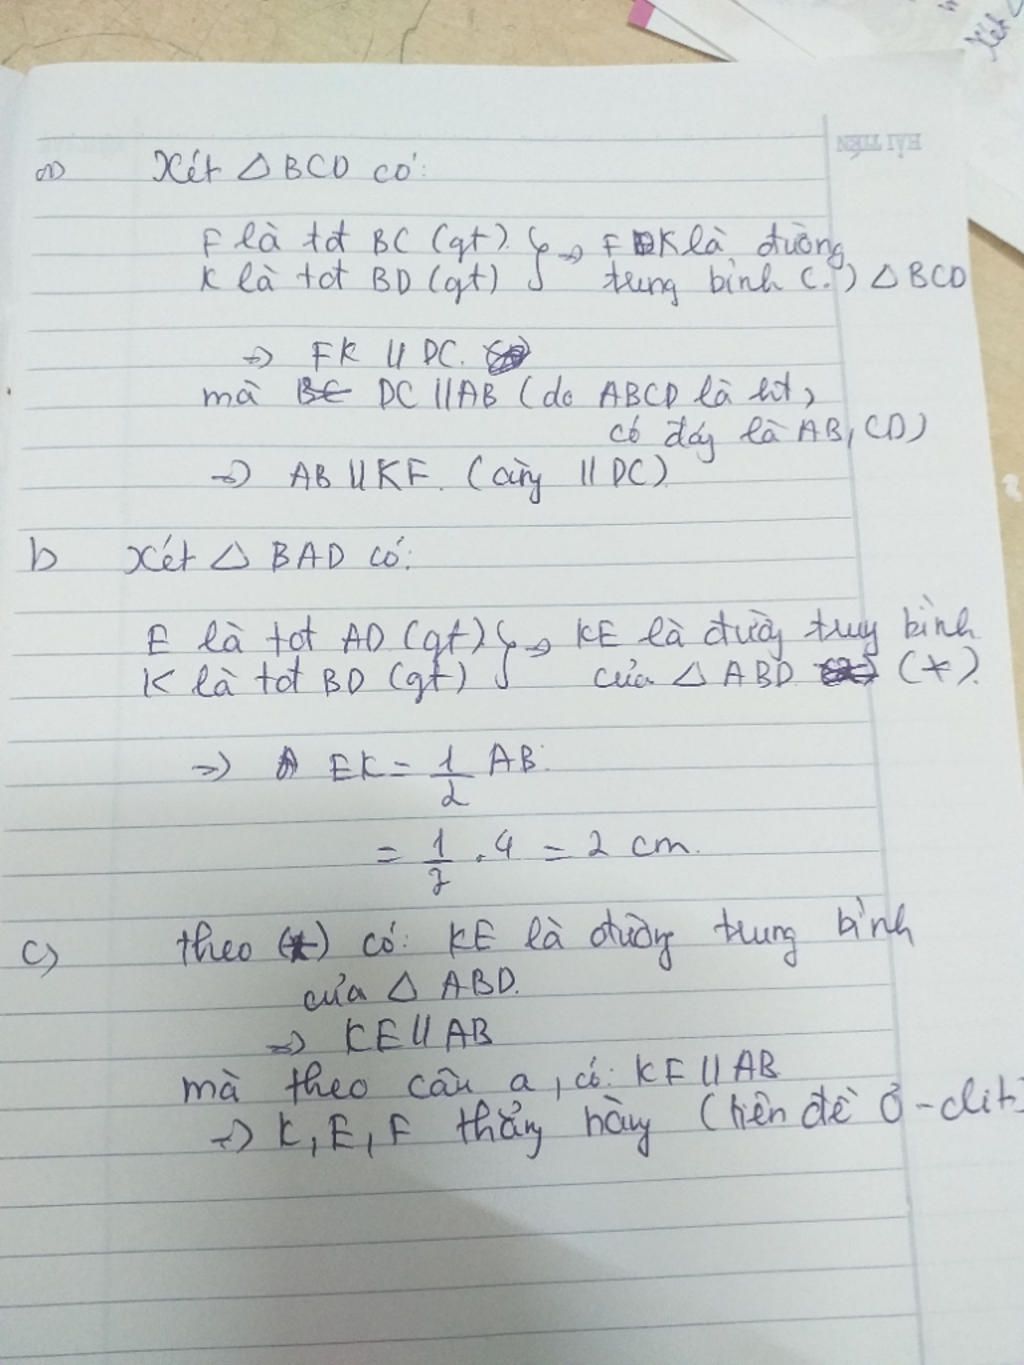 a) Xét △ BCD có:
F là tđ BC (gt) } => FK là đường
K là tđ BD (gt) trung bình (.) △ BCD
=> FK // DC.
mà DC // AB (do ABCD là ht,
có đáy là AB, CD)
=> AB // KF. (cùng // DC)
b Xét △ BAD có:
E là tđ AD (gt) } => KE là đường trung bình
K là tđ BD (gt) của △ ABD (*).
=> EK = 1/2 AB.
= 1/2 . 4 = 2 cm.
c) theo (*) có: KE là đường trung bình
của △ ABD.
=> KE // AB
mà theo câu a, có: KF // AB
=> K, E, F thẳng hàng (tiên đề Ơ-clit)
HẢI TIẾN
Xét